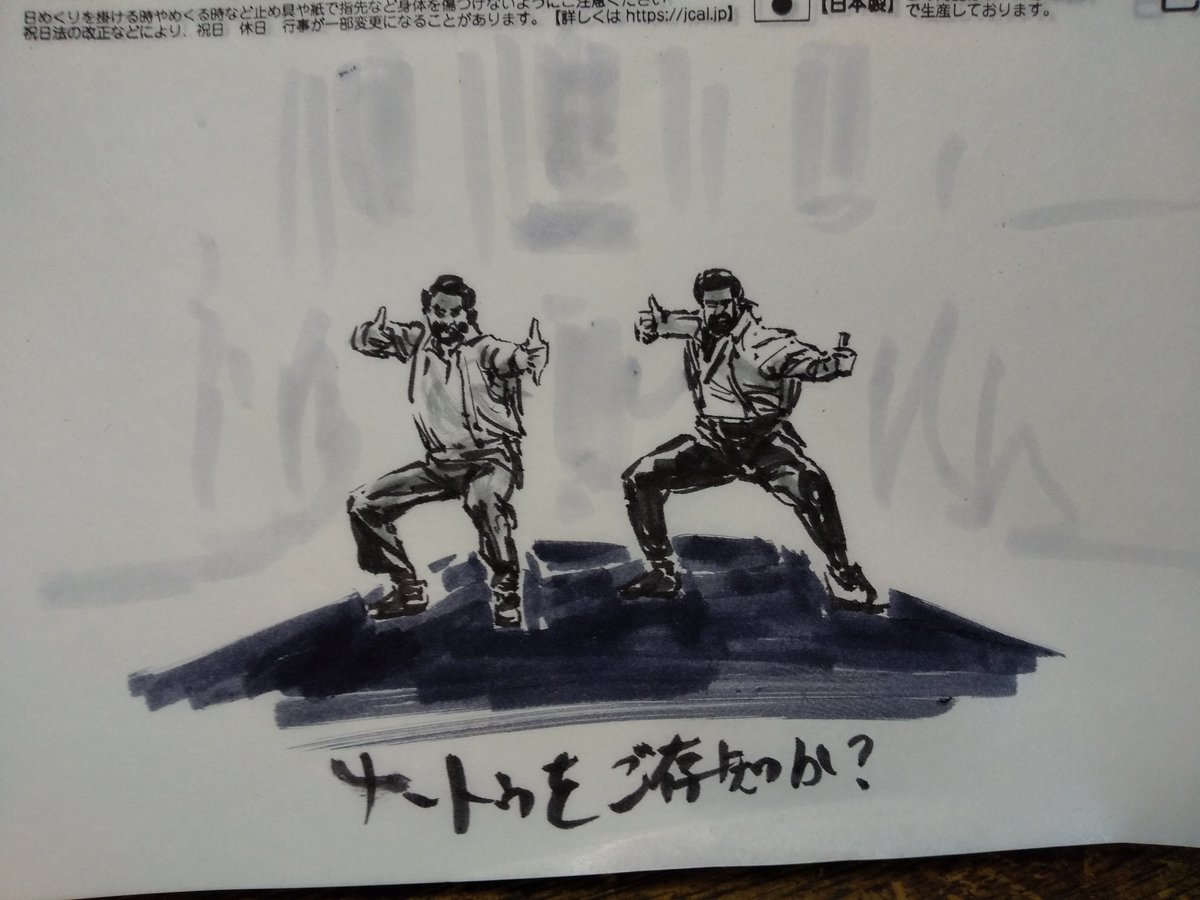 日めくりを掛ける時やめくる時など止め具や紙で指先など身体を傷つけないようにご注意ください
祝日法の改正などにより、祝日 休日 行事が一部変更になることがあります。【詳しくは https://jcal.jp】
【日本製】
で生産しております。
ナートゥをご存知か？